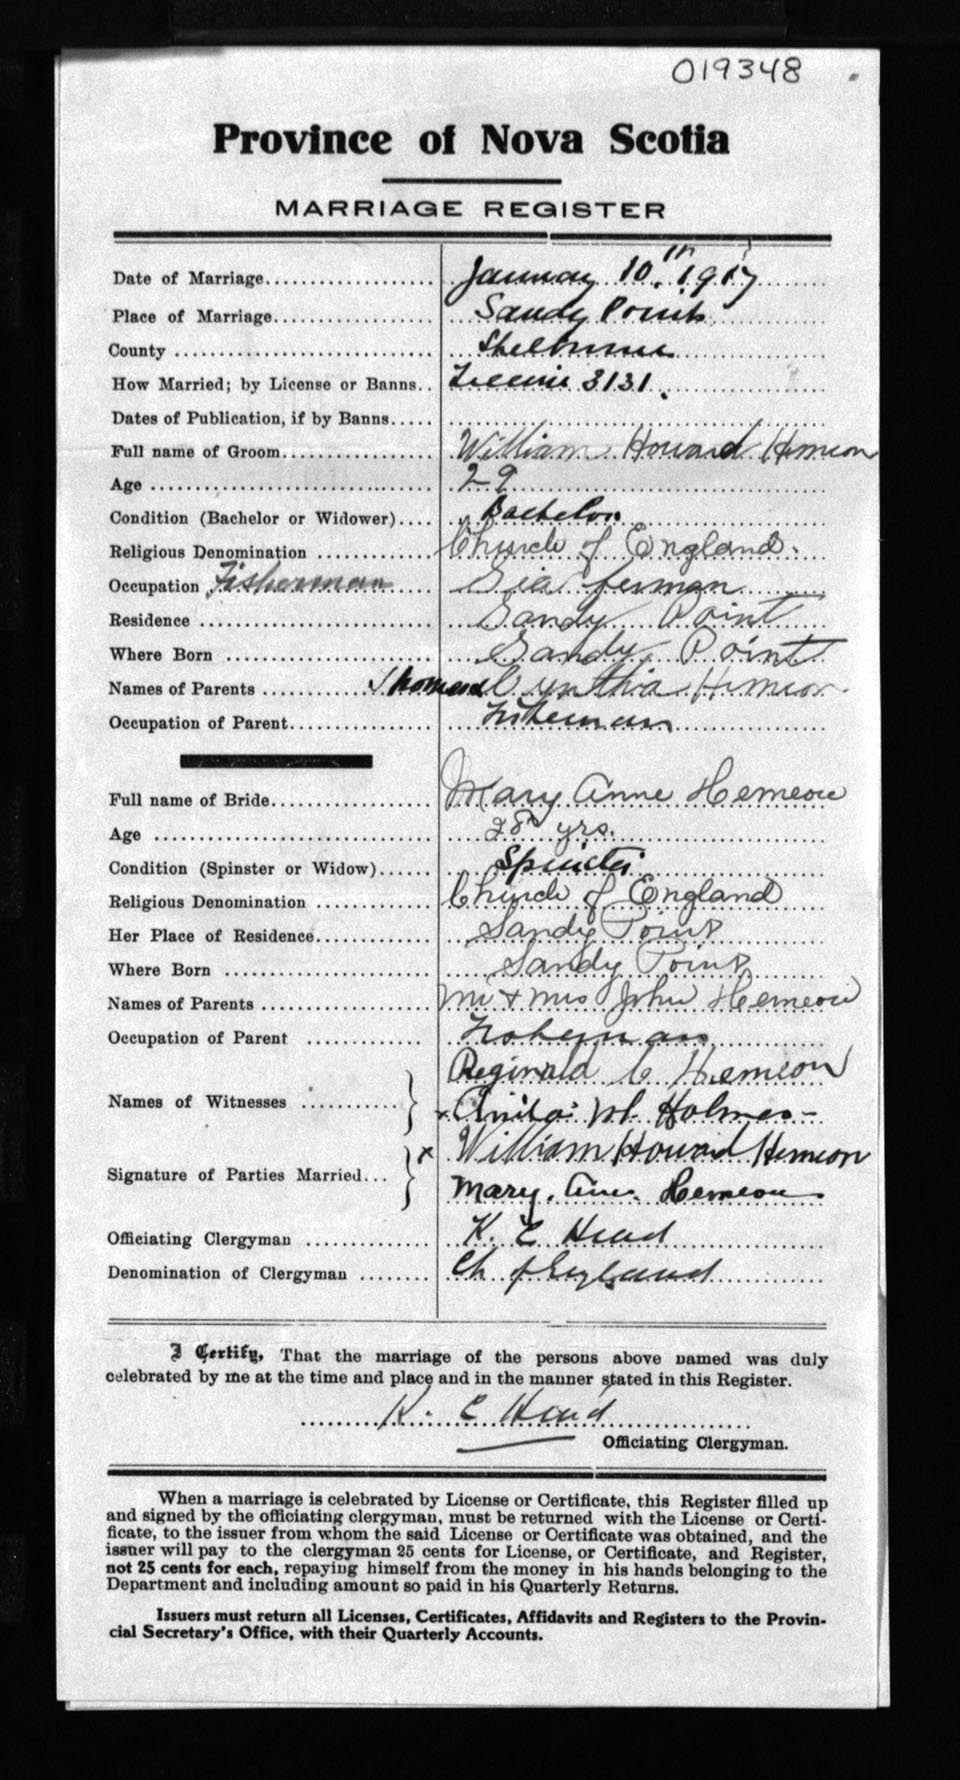 019348
Province of Nova Scotia
MARRIAGE REGISTER
Date of Marriage January 10th 1917
Place of Marriage Sandy Point
County Shelburne
How Married; by License or Banns License 3131.
Dates of Publication, if by Banns
Full name of Groom William Howard Hemeon
Age 29
Condition (Bachelor or Widower) Bachelor
Religious Denomination Church of England.
Occupation Fisherman Sia ferman
Residence Sandy Point
Where Born Sandy Point
Names of Parents Thomas & Cynthia Hemeon
Occupation of Parent Fisherman
Full name of Bride Mary Anne Hemeon
Age 28 yrs.
Condition (Spinster or Widow) Spinster
Religious Denomination Church of England
Her Place of Residence Sandy Point
Where Born Sandy Point
Names of Parents Mr & Mrs John Hemeon
Occupation of Parent Fisherman
Reginald C Hemeon
Names of Witnesses
x Anita M. Holmes
x William Howard Hemeon
Signature of Parties Married
Mary. Ann. Hemeon
Officiating Clergyman K. E Hind
Denomination of Clergyman Ch of England
I Certify, That the marriage of the persons above named was duly
celebrated by me at the time and place and in the manner stated in this Register.
K. E Hind
Officiating Clergyman.
When a marriage is celebrated by License or Certificate, this Register filled up
and signed by the officiating clergyman, must be returned with the License or Certi-
ficate, to the issuer from whom the said License or Certificate was obtained, and the
issuer will pay to the clergyman 25 cents for License, or Certificate, and Register,
not 25 cents for each, repaying himself from the money in his hands belonging to the
Department and including amount so paid in his Quarterly Returns.
Issuers must return all Licenses, Certificates, Affidavits and Registers to the Provin-
cial Secretary's Office, with their Quarterly Accounts.